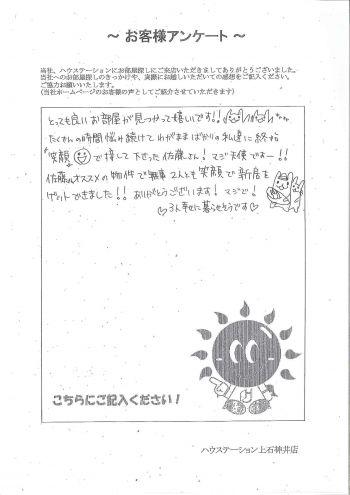 ～ お客様アンケート ～
当社、ハウステーションにお部屋探しにご来店いただきましてありがとうございました。
当社へのお部屋探しのきっかけや、実際にお越しいただいての感想をご記入ください。
ご協力お願いいたします。
(当社ホームページのお客様の声としてご紹介させていただきます)
とっても良いお部屋が見つかって嬉しいです!!
たくさんの時間悩み続けてわがままばかりの私達に終始
"笑顔"で接して下さった佐藤さん! マジ天使ですー!!
佐藤さんオススメの物件で無事2人とも笑顔で新居を
ゲットできました!! ありがとうございます! マジで!
♡3人幸せに暮らせそうです♡
こちらにご記入ください!
ハウステーション上石神井店